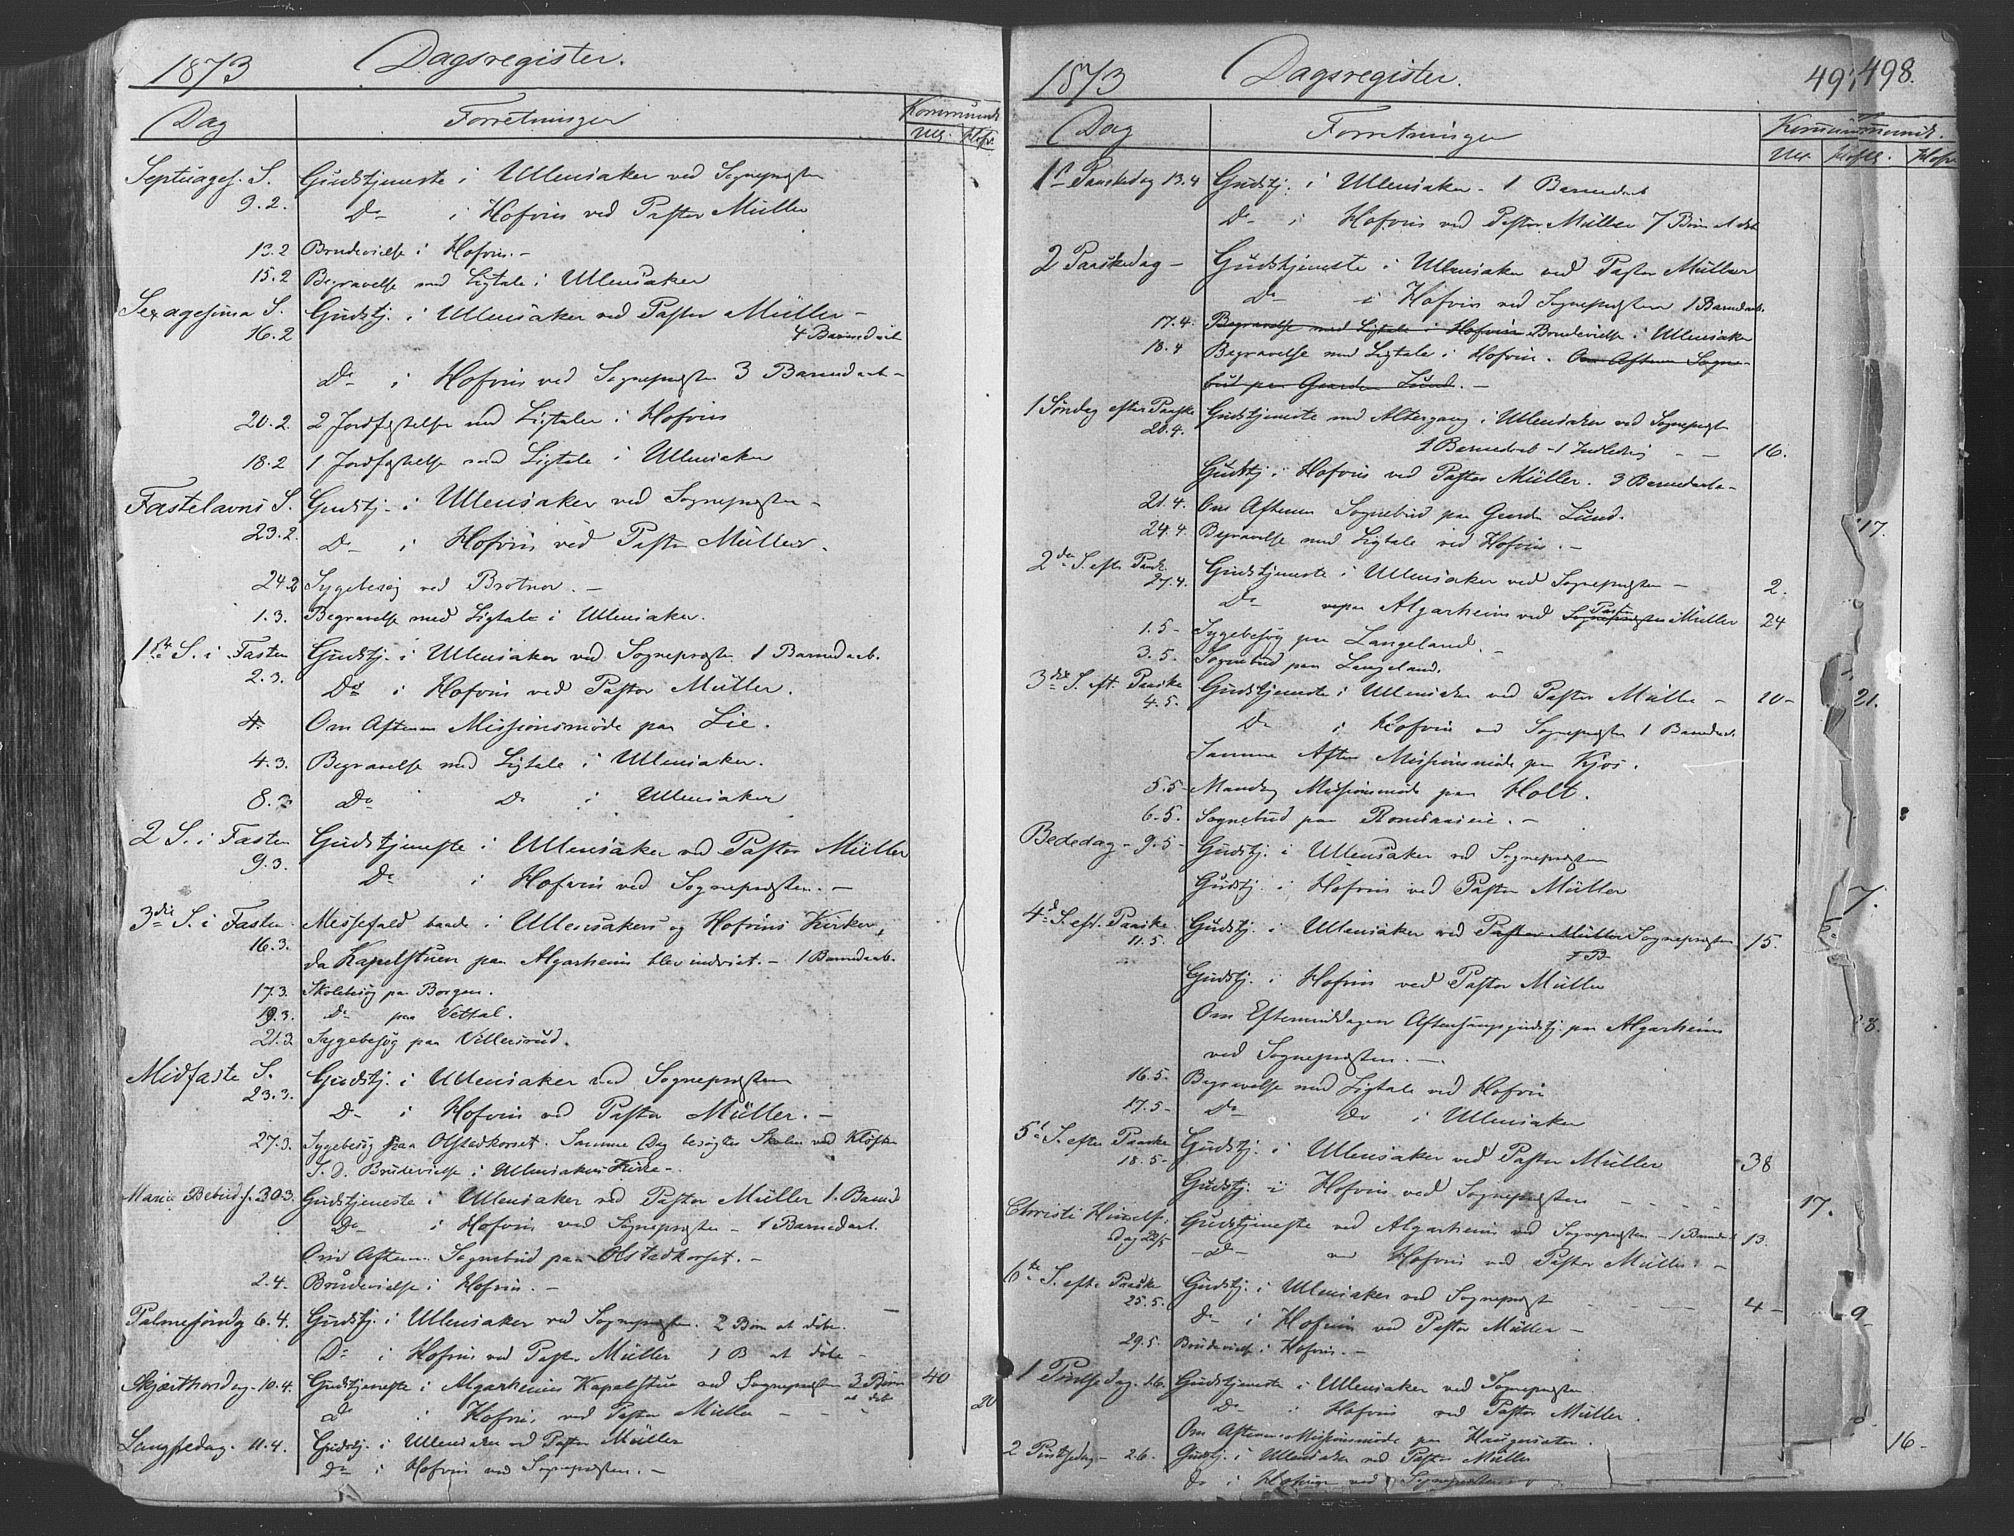 1873 Dagsregister.
Dag Forretninger Kommunik.
Ull. Hofv.
Septuages. S. Gudstjeneste i Ullensaker ved Sognepresten
9.2. Do i Hofvin ved Pastor Müller
13.2 Brudevielse i Hofvin. -
15.2 Begravelse med Ligtale i Ullensaker
Sexagesima S. Gudstj. i Ullensaker ved Pastor Müller -
16.2 4 Barnedaab
Do i Hofvin ved Sognepresten 3 Barnedaab -
20.2. 2 Jordfæstelser med Ligtaler i Hofvin
18.2 1 Jordfæstelse med Ligtale i Ullensaker
Fastelavns S. Gudstj. i Ullensaker ved Sognepresten -
23.2. Do i Hofvin ved Pastor Müller.
24.2 Sygebesøg ved Brotnov. -
1.3. Begravelse med Ligtale i Ullensaker.
1ste S. i Fasten Gudstj. i Ullensaker ved Sognepresten 1 Barnedaab.
2.3. Do i Hofvin ved Pastor Müller.
4. Om Aftenen Missionsmöde paa Lie.
4.3. Begravelse med Ligtale i Ullensaker.
8.3 Do Do i Ullensaker
2 S. i Fasten Gudstjeneste i Ullensaker ved Pastor Müller
9.3. Do i Hofvin ved Sognepresten. -
3die S. i Fasten Messefald baade i Ullensakers og Hofvins Kirker,
16.3. da Kapelstuen paa Algarheim blev indviet. - 1 Barnedaab.
17.3. Skolebesøg paa Borgen.
19.3. Do paa Vettal.
21.3 Sygebesøg paa Villersrud.
Midfaste S. Gudstj. i Ullensaker ved Sognepresten
23.3. Do i Hofvin ved Pastor Müller. -
27.3. Sygebesøg paa Olstadkorset. Samme Dag besøgtes Skolen ved Kløften
S. D. Brudevielse i Ullensakers Kirke -.
Mariæ Bebud. 30.3. Gudstjeneste i Ullensaker ved Pastor Müller 1. Barned
Do i Hofvin ved Sognepresten - 1 Barnedaab.
Om Aftenen Sognebud paa Olstadkorset. -
2.4. Brudevielse i Hofvin. -
Palmesöndag 6.4. Gudstj. i Ullensaker ved Sognepresten. 2 Børn at døbe.
Do i Hofvin ved Pastor Müller 1 B at døbe -
Skjærthorsdag. 10.4. Gudstjeneste i Algarheims Kapelstue ved Sognepresten 3 Børn at døbe 40
Do i Hofvin ved Pastor Müller - 20
Langfredag. 11.4. Gudstj. i Ullensaker ved Pastor Müller
Do i Hofvin ved Sognepresten. -
1873 Dagsregister. 497 498.
Dag Forretninger Kommunik.
Ull. Hofv.
1ste Paaskedag 13.4 Gudstj. i Ullensaker - 1 Barnedaab
Do i Hofvin ved Pastor Müller 7 Børn at døbe
2 Paaskedag - Gudstjeneste i Ullensaker ved Pastor Müller
Do i Hofvin ved Sognepresten 1 Barnedaab.
17.4. Begravelse med Ligtale i Hofvin Brudevielse i Ullensaker
18.4 Begravelse med Ligtale i Hofvin. Om Aftenen Sogne-
bud paa Gaarden Lund. -
1 Søndag efter Paaske Gudstjeneste med Altergang i Ullensaker ved Sogneprest
20.4. 1 Barnedaab - 1 Indledning - - 16.
Gudstj. i Hofvin ved Pastor Müller. 3 Barnedaab -
21.4. Om Aftenen Sognebud paa Gaarden Lund. 17.
24.4 Begravelse med Ligtale ved Hofvin. -
2den S. efter Paaske Gudstjeneste i Ullensaker ved Sognepresten -
27.4. 2.
Do ved Algarheim ved Sognepresten Pastor Müller 24
1.5 - Sygebesøg paa Langeland. -
3.5. Sognebud paa Langeland.
3die S. eft. Paaske Gudstjeneste i Ullensaker ved Pastor Müller - 10 - 21.
4.5. Do i Hofvin ved Sognepresten 1 Barnedaab.
Samme Aften Missionsmöde paa Kjos.
5.5 - Mandag Missionsmöde paa Holt.
6.5. Sognebud paa Romsaaseie. -
Bededag - 9.5 - Gudstj. i Ullensaker ved Sognepresten
Gudstj. i Hofvin ved Pastor Müller 7.
4de S. eft. Paaske Gudstj. i Ullensaker ved Pastor Müller Sognepresten 15.
11.5. 7 B.
Gudstj. i Hofvin ved Pastor Müller
Om Eftermiddagen Aftensangsgudstj. paa Algarheim
ved Sognepresten. -
16.5. Begravelse med Ligtale ved Hofvin
17.5 - Do Do i Ullensaker
5te S. efter Paaske Gudstj. i Ullensaker ved Pastor Müller 38
18.5 - Gudstj. i Hofvin ved Sognepresten - - - - 17.
Christi Himmelf. Gudstjeneste ved Algarheim ved Sognepresten - 1 Barned 13
dag 22/5 - Do - ved Hofvin ved Pastor Müller. -
6te S. eft. Paaske Gudstj. i Ullensaker ved Sogneprest - - - 4 - 9 -
25.5. Do i Hofvin ved Pastor Müller -
29.5. Brudevielse i Hofvin. -
1 Pintsedag. 1.6. Gudstjeneste i Ullensaker ved Sognepresten
Do i Hofvin ved Pastor Müller.
Om Aftenen Missionsmöde paa Haugerseter. 16 -
2 Pintsedag - 2.6. Gudstj. i Ullensaker ved Pastor Müller
Do i Hofvin ved Sognepresten